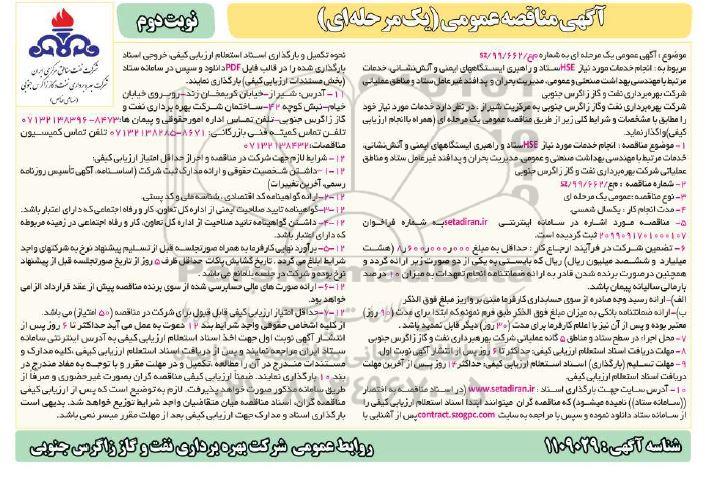 آگهی مناقصه عمومی (یک مرحله‌ای)
نوبت دوم
شرکت نفت مناطق مرکزی ایران
شرکت بهره برداری نفت و گاز زاگرس جنوبی
(سهامی خاص)
موضوع : آگهی عمومی یک مرحله ای به شماره م م ع/۹۹/۶۶۲/ص
مربوط به : انجام خدمات مورد نیاز HSE ستاد و راهبری ایستگاههای ایمنی و آتش‌نشانی، خدمات
مرتبط با مهندسی بهداشت صنعتی و عمومی، مدیریت بحران و پدافند غیرعامل ستاد و مناطق عملیاتی
شرکت بهره‌برداری نفت و گاز زاگرس جنوبی
شرکت بهره‌برداری نفت وگاز زاگرس جنوبی به مرکزیت شیراز ، در نظر دارد خدمات مورد نیاز خود
را مطابق با مشخصات و شرایط کلی زیر از طریق مناقصه عمومی یک مرحله ای (همراه با انجام ارزیابی
کیفی) واگذار نماید.
۱– موضوع مناقصه : انجام خدمات مورد نیاز HSE ستاد و راهبری ایستگاههای ایمنی و آتش‌نشانی،
خدمات مرتبط با مهندسی بهداشت صنعتی و عمومی، مدیریت بحران و پدافند غیرعامل ستاد و مناطق
عملیاتی شرکت بهره‌برداری نفت و گاز زاگرس جنوبی
۲– شماره مناقصه :
۳– نوع مناقصه: عمومی یک مرحله ای
۴– مدت انجام کار : یکسال شمسی.
۵– مناقصه مورد اشاره در سامانه اینترنتی setadiran.ir به شماره فراخوان
۲۰۹۹۰۹۱۷۰۱۰۰۰۱۷۷ ثبت گردیده است.
۶– تضمین شرکت در فرآیند ارجاع کار : حداقل به مبلغ ۸/۶۰۰/۰۰۰/۰۰۰ ( هشت
میلیارد و ششصد میلیون ریال) ریال که بایستی به یکی از دو صورت زیر ارائه گردد و
همچنین درصورت برنده شدن قادر به ارائه ضمانتنامه انجام تعهدات به میزان ۱۰ درصد
بارمالی سالیانه پیمان باشد.
الف)- ارائه رسید وجه صادره از سوی حسابداری کارفرما مبنی بر واریز مبلغ فوق الذکر
ب)- ارائه ضمانتنامه بانکی به میزان مبلغ فوق الذکر طبق فرم نمونه که ابتدا برای مدت (۹۰ روز)
معتبر بوده و پس از آن نیز با اعلام کارفرما برای مدت (۳۰ روز) دیگر قابل تمدید باشد .
۷– محل اجرا: در سطح ستاد و مناطق ۵ گانه عملیاتی شرکت بهره‌برداری نفت و گاز زاگرس جنوبی
۸– مهلت دریافت اسناد استعلام ارزیابی کیفی: حداکثر تا ۶ روز پس از انتشار آگهی نوبت اول.
۹– مهلت تسلیم (بارگذاری) اسناد استعلام ارزیابی کیفی: حداکثر ۱۴ روز پس از آخرین مهلت
دریافت اسناد استعلام ارزیابی کیفی.
۱۰– آدرس سایت جهت بارگذاری اسناد : www.setadiran.ir (در اسناد مناقصه به اختصار
((سامانه ستاد)) نامیده میشود) که مناقصه گران میتوانند ابتدا اسناد استعلام ارزیابی کیفی را
از سامانه ستاد دانلود نموده و سپس با مراجعه به سایت contract.szogpc.com پس از آشنایی با
نحوه تکمیل و بارگذاری اسناد استعلام ارزیابی کیفی، خروجی اسناد
بارگذاری شده را در قالب فایل PDF دانلود و سپس در سامانه ستاد
(بخش مستندات ارزیابی کیفی) بارگذاری نمایند.
۱۱– آدرس: شیراز-خیابان کریمخان زند-روبروی خیابان
خیام-نبش کوچه ۴۲-ساختمان شرکت بهره برداری نفت و
گاز زاگرس جنوبی-تلفن تماس اداره امورحقوقی و پیمان ها: ۸۴۷۳-۰۷۱۳۲۱۳۸۳۹۶
تلفن تماس کمیته فنی بازرگانی: ۸۶۷۱-۰۷۱۳۲۱۳۸۲۸۵ تلفن تماس کمیسیون
مناقصات: ۰۷۱۳۲۱۳۸۴۳۲
۱۲– شرایط لازم جهت شرکت در مناقصه و احراز حداقل امتیاز ارزیابی کیفی:
۱-۱۲–داشتن شخصیت حقوقی و ارائه مدارک ثبت شرکت (اساسنامه، آگهی تأسیس روزنامه
رسمی، آخرین تغییرات)
۲-۱۲–ارائه گواهینامه کد اقتصادی ، شناسه ملی و کد پستی.
۳-۱۲–گواهینامه تایید صلاحیت ایمنی از اداره کل تعاون، کار و رفاه اجتماعی که دارای اعتبار باشد.
۴-۱۲–داشتن گواهینامه تائید صلاحیت از اداره کل تعاون، کار و رفاه اجتماعی در زمینه مربوطه
که دارای اعتبار باشد.
۵-۱۲–برآورد نهایی کارفرما به همراه صورتجلسه قبل از تسلیم پیشنهاد نرخ به شرکتهای واجد
شرایط ابلاغ می گردد . تاریخ گشایش پاکات حداقل ظرف ۵ روز از تاریخ صورتجلسه قبل از پیشنهاد
نرخ بوده و شرکت در جلسه بلامانع می باشد.
۶-۱۲–ارائه صورت های مالی حسابرسی شده از سوی برنده مناقصه پیش از عقد قرارداد الزامی
خواهد بود.
۷-۱۲–حداقل امتیاز ارزیابی کیفی قابل قبول برای شرکت در مناقصه (۵۰ امتیاز) می باشد.
از کلیه اشخاص حقوقی واجد شرایط بند ۱۲ دعوت به عمل می آید حداکثر تا ۶ روز پس از
انتشار آگهی نوبت اول جهت اخذ اسناد استعلام ارزیابی کیفی به آدرس اینترنتی سامانه
ستاد ایران مراجعه نمایند و پس از دریافت اسناد استعلام ارزیابی کیفی ،کلیه مدارک و
مستندات مندرج در آن را مطالعه ،تکمیل و در مهلت مقرر و با توجه به مفاد مندرج در
بند ۱۰ بارگذاری نمایند. ضمنا ارزیابی کیفی مناقصه گران بصورت غیرحضوری و صرفا از
طریق سامانه مذکور صورت خواهد پذیرفت. لازم به توضیح است که پس از ارزیابی کیفی
مناقصه گران، اسناد مناقصه میان متقاضیان واجد شرایط توزیع خواهد شد. بدیهی است
بارگذاری اسناد و مدارک جهت ارزیابی کیفی بعد از مهلت مقرر میسر نمی باشد.
شناسه آگهی : ۱۱۰۹۰۲۹
روابط عمومی شرکت بهره برداری نفت و گاز زاگرس جنوبی